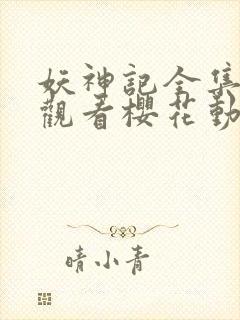 妖神記全集
觀看櫻花動
晴小青